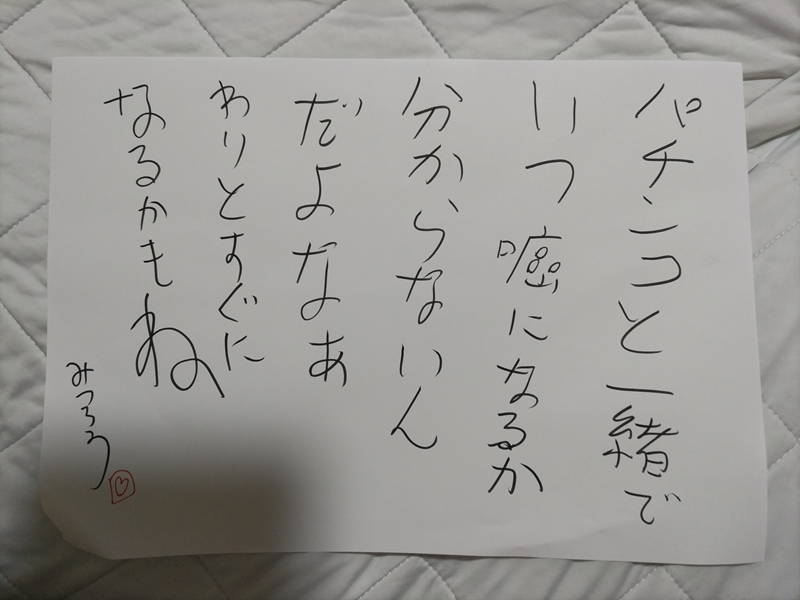 パチンコと一緒で
いつ癌になるか
分からないん
だよなぁ
わりとすぐに
なるかもね
みつろう